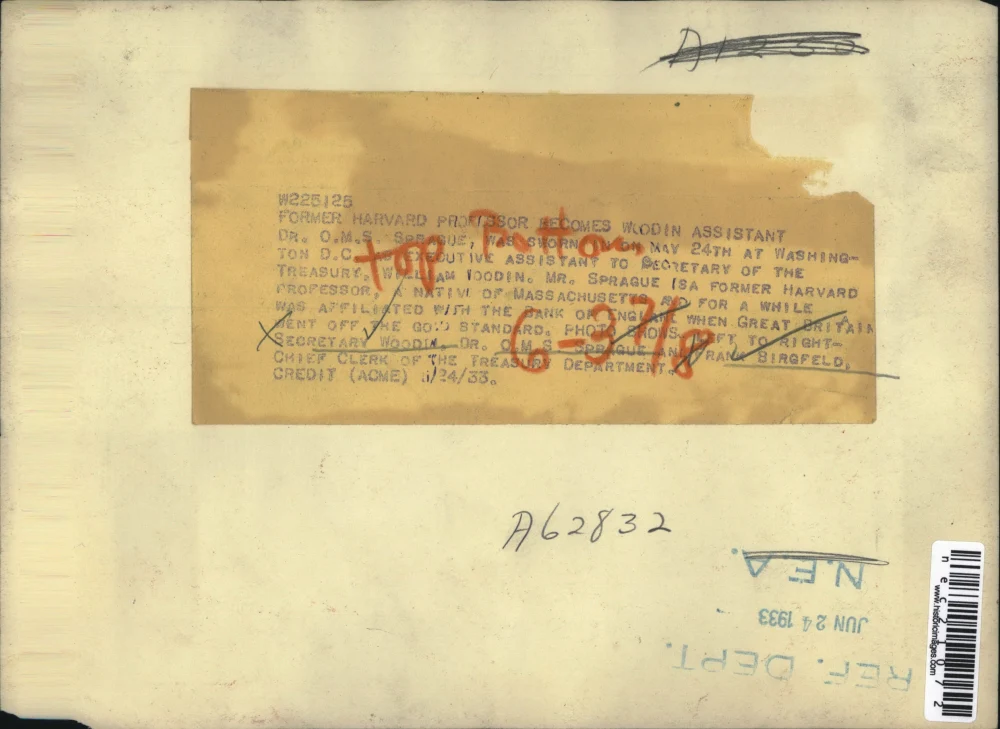 A1250
W225125
FORMER HARVARD PROFESSOR BECOMES WOODIN ASSISTANT
DR. O.M.S. SPRAGUE, WAS SWORN IN ON MAY 24TH AT WASHING-
TON D.C. AS EXECUTIVE ASSISTANT TO SECRETARY OF THE
TREASURY, WILLIAM WOODIN. MR. SPRAGUE ISA FORMER HARVARD
PROFESSOR, A NATIVE OF MASSACHUSETTS AND FOR A WHILE
WAS AFFILIATED WITH THE BANK OF ENGLAND WHEN GREAT BRITAIN
WENT OFF THE GOLD STANDARD. PHOTO SHOWS LEFT TO RIGHT-
SECRETARY WOODIN, DR. O.M.S. SPRAGUE AND FRANK BIRGFELD,
CHIEF CLERK OF THE TREASURY DEPARTMENT.
CREDIT (ACME) 5/24/33.
top Bottom
6-3 7/8
A62832
N.E.A.
JUN 24 1933
REF. DEPT.
nec21072
www.historicimages.com